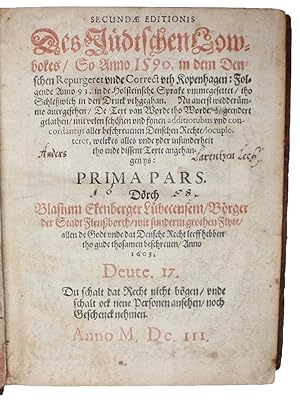 SECUNDÆ EDITIONIS
Des Jüdtschen Low-
bokes / So Anno 1590. in dem Den-
schen Repurgeret vnde Correct vth Kopenhagen: Fol-
gende Anno 93. in de Holsteinsche Sprake vmmegesettet / tho
Schleßwich in den Druck vthgeghan. Nu auerst wedderüm-
me auergesehen / De Text van Worde tho Worde
gelathen / mit velen schönen vnd fönen additionibus vnd con-
cordantijs aller beschreuenen Denschen Rechte / locuple-
teret, welckes alles vnde yder insunderheit
tho ende dissem Texte angehan-
gen ys:
Anders
PRIMA PARS.
16 58.
Dörch
Blasium Ekenberger Lübecensem / Börger
der Stadt Flenßborch / mit sunderm grothen Flyte /
allen de Godt vnde dat Densche Recht leeff hebben
tho gude thosamen beschreuen / Anno
1603.
Deute. 17.
Du schalt dat Recht nicht bögen / vnde
schalt ock nene Personen ansehen / noch
Geschenck nehmen.
Anno M. Dc. III.